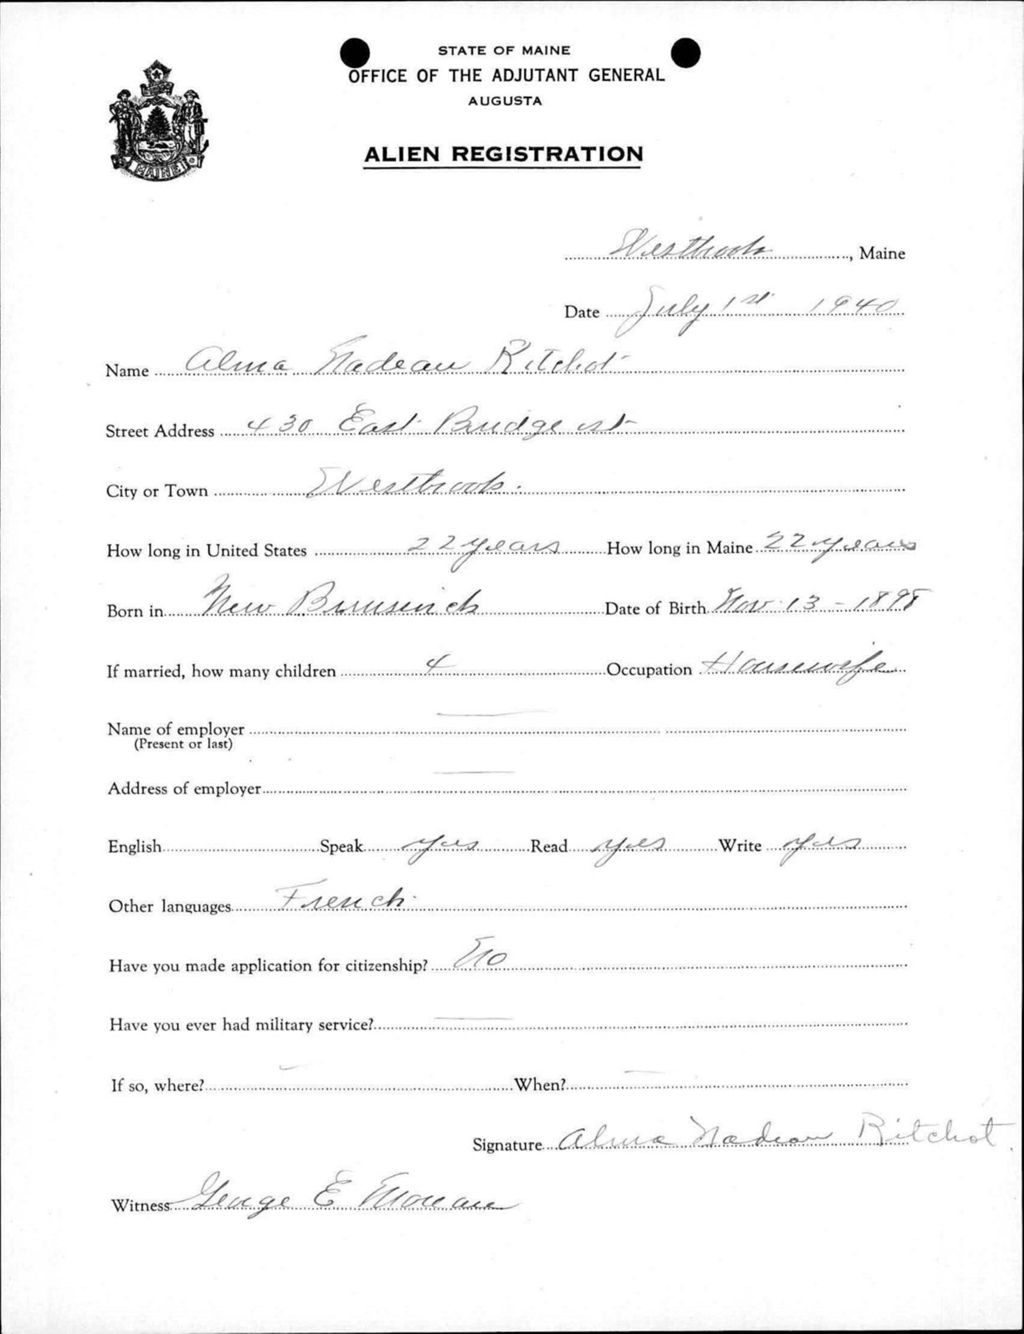 STATE OF MAINE
OFFICE OF THE ADJUTANT GENERAL
AUGUSTA
MAINE
ALIEN REGISTRATION
Westbrook, Maine
Date July 1st 1940
Name Alma Nadeau Ritchot
Street Address 430 East Bridge st
City or Town Westbrook.
How long in United States 22 years How long in Maine 22 years
Born in New Brunswick Date of Birth Nov 13 - 1898
If married, how many children 4 Occupation Housewife
Name of employer
(Present or last)
Address of employer
English Speak yes Read yes Write yes
Other languages French
Have you made application for citizenship? No
Have you ever had military service?
If so, where? When?
Signature Alma Nadeau Ritchot
Witness George E Moreau